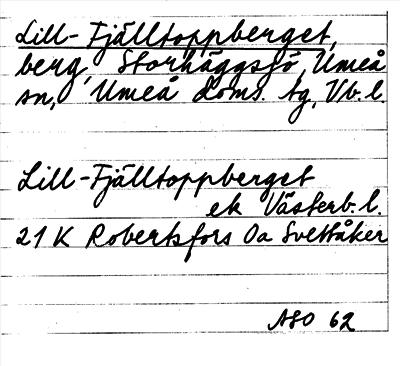 Lill-Fjälltoppberget,
berg, Storhäggsjö, Umeå
sn, Umeå doms. tg, Vb. l.
Lill-Fjälltoppberget
ek Västerb. l.
21 K Robertsfors Oa Svettåker
ASO 62